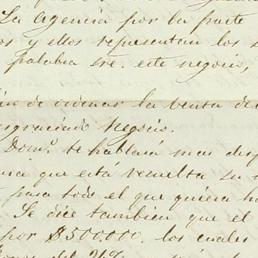 La Agencia por la parte
os y ellos representan los s
palabra sre. este negocio,
on de ordenar la venta de
esgraciado Negocio.
Domo. te hablara mas desp
ma que está resuelta su
para todo el que quiera h
Se dice tambien que el
por $500.000. los cuales